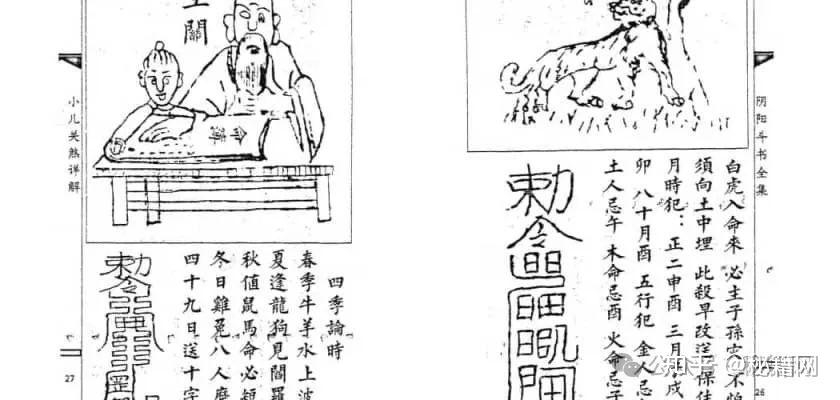 阴阳斗书全集
白虎入命來 必主子孫 不怕
須向土中埋 此殺早改送 保
月時犯：正二申酉 三月戌
卯 八十月酉 五行犯 金人忌
土人忌午 木命忌酉 火命忌子
勅令
26
關
命簿
小儿关煞详解
四季論時
春季牛羊水上波
夏逢龍狗見閻羅
秋值鼠馬命必短
冬日雞兔八人
四十九日送十字
勅令
27
秘籍网